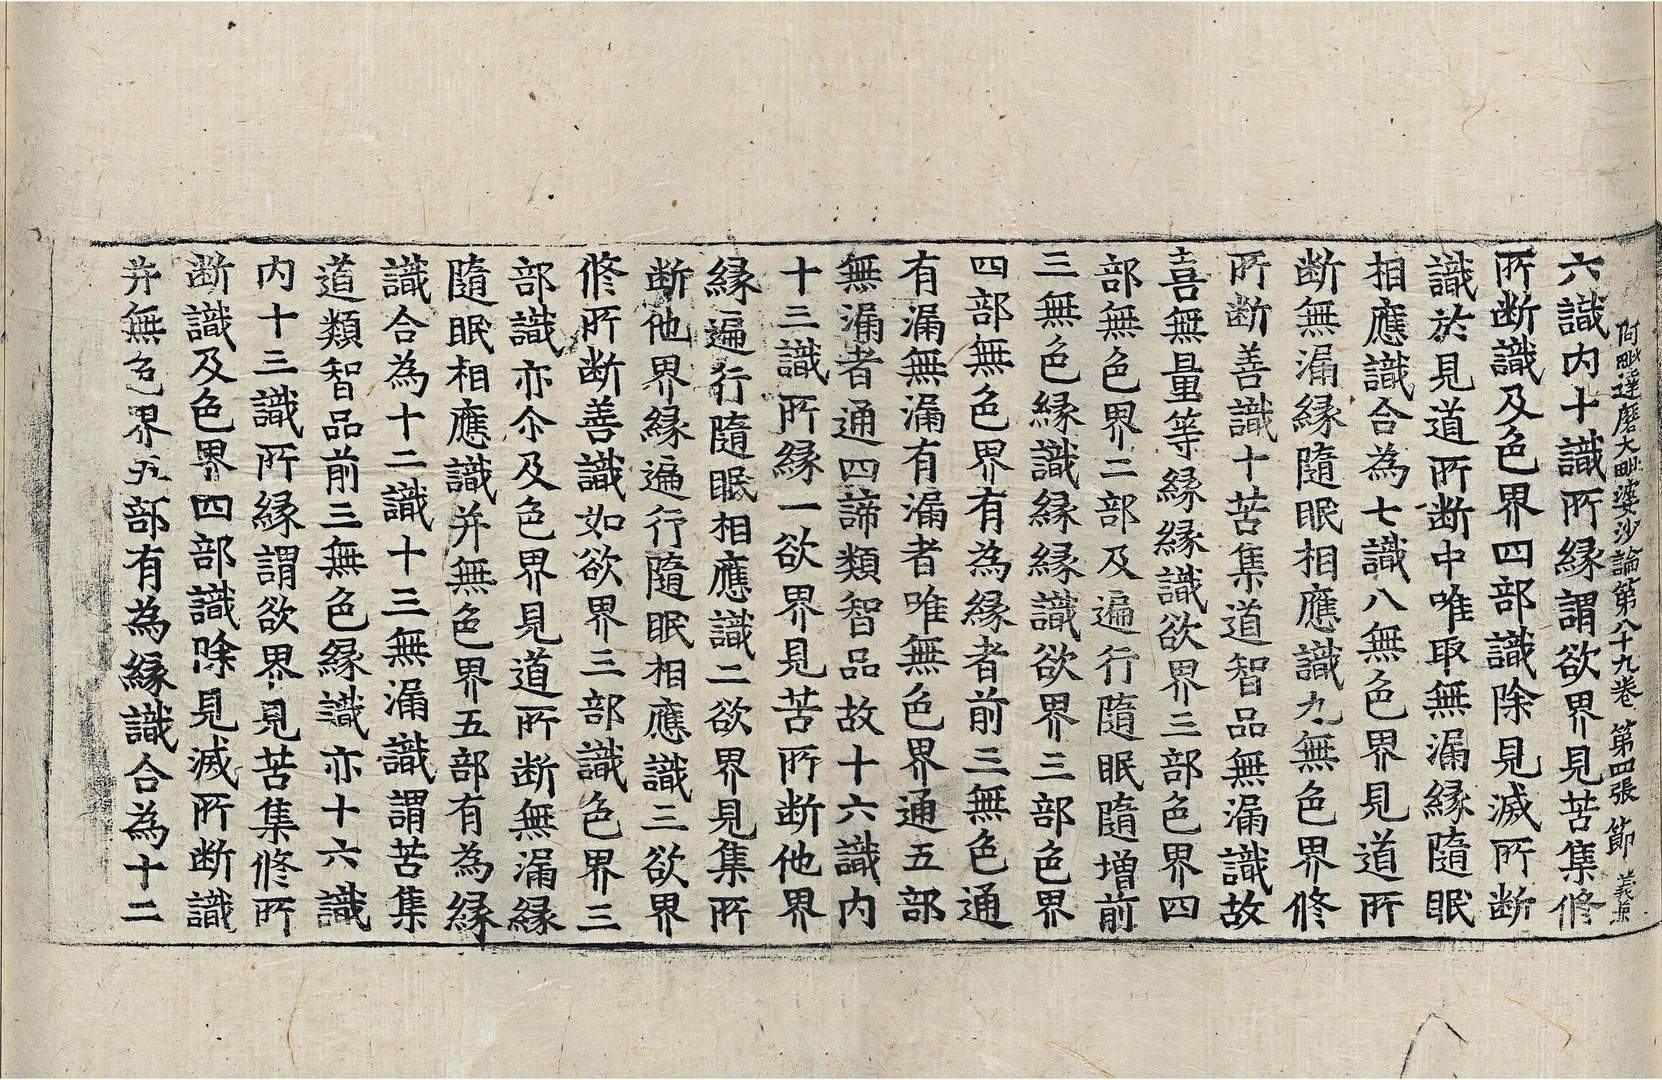 阿毗達磨大毗婆沙論第八十九卷 第四張 節 義集
六識内十識所縁謂欲界見苦集修
所断識及色界四部識除見滅所断
識於見道所断中唯取無漏縁隨眠
相應識合為七識八無色界見道所
断無漏縁隨眠相應識九無色界修
所断善識十苦集道智品無漏識故
喜無量等縁縁識欲界三部色界四
部無色界二部及遍行隨眠隨增前
三無色縁識縁縁識欲界三部色界
四部無色界有為縁者前三無色通
有漏無漏有漏者唯無色界通五部
無漏者通四諦類智品故十六識内
十三識所縁一欲界見苦所断他界
縁遍行隨眠相應識二欲界見集所
断他界縁遍行隨眠相應識三欲界
修所断善識如欲界三部識色界三
部識亦尒及色界見道所断無漏縁
隨眠相應識并無色界五部有為縁
識合為十二識十三無漏識謂苦集
道類智品前三無色縁識亦十六識
内十三識所縁謂欲界見苦集修所
断識及色界四部識除見滅所断識
并無色界五部有為縁識合為十二